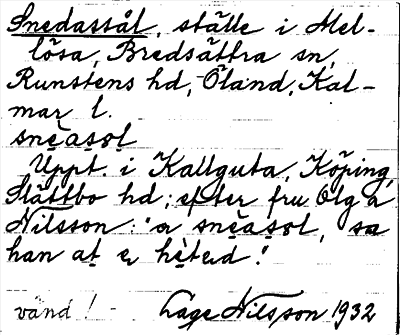 Snedassål, ställe i Mel-
lösa, Bredsättra sn,
Runstens hd, Öland, Kal-
mar l.
snèasol
Uppt. i Kallguta, Köping,
Slättbo hd; efter fru Olga
Nilsson: 'a snèasol, sa
han at e hèted!'
vänd! Låge Nilsson 1932